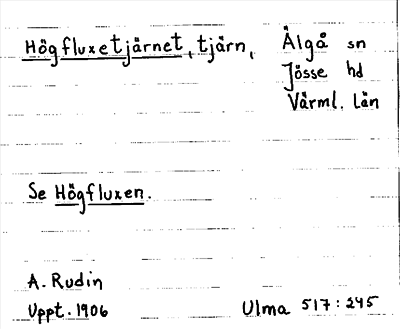 Högfluxetjärnet, tjärn, Älgå sn
Jösse hd
Värml. län
Se Högfluxen.
A. Rudin
Uppt. 1906
Ulma 517:245